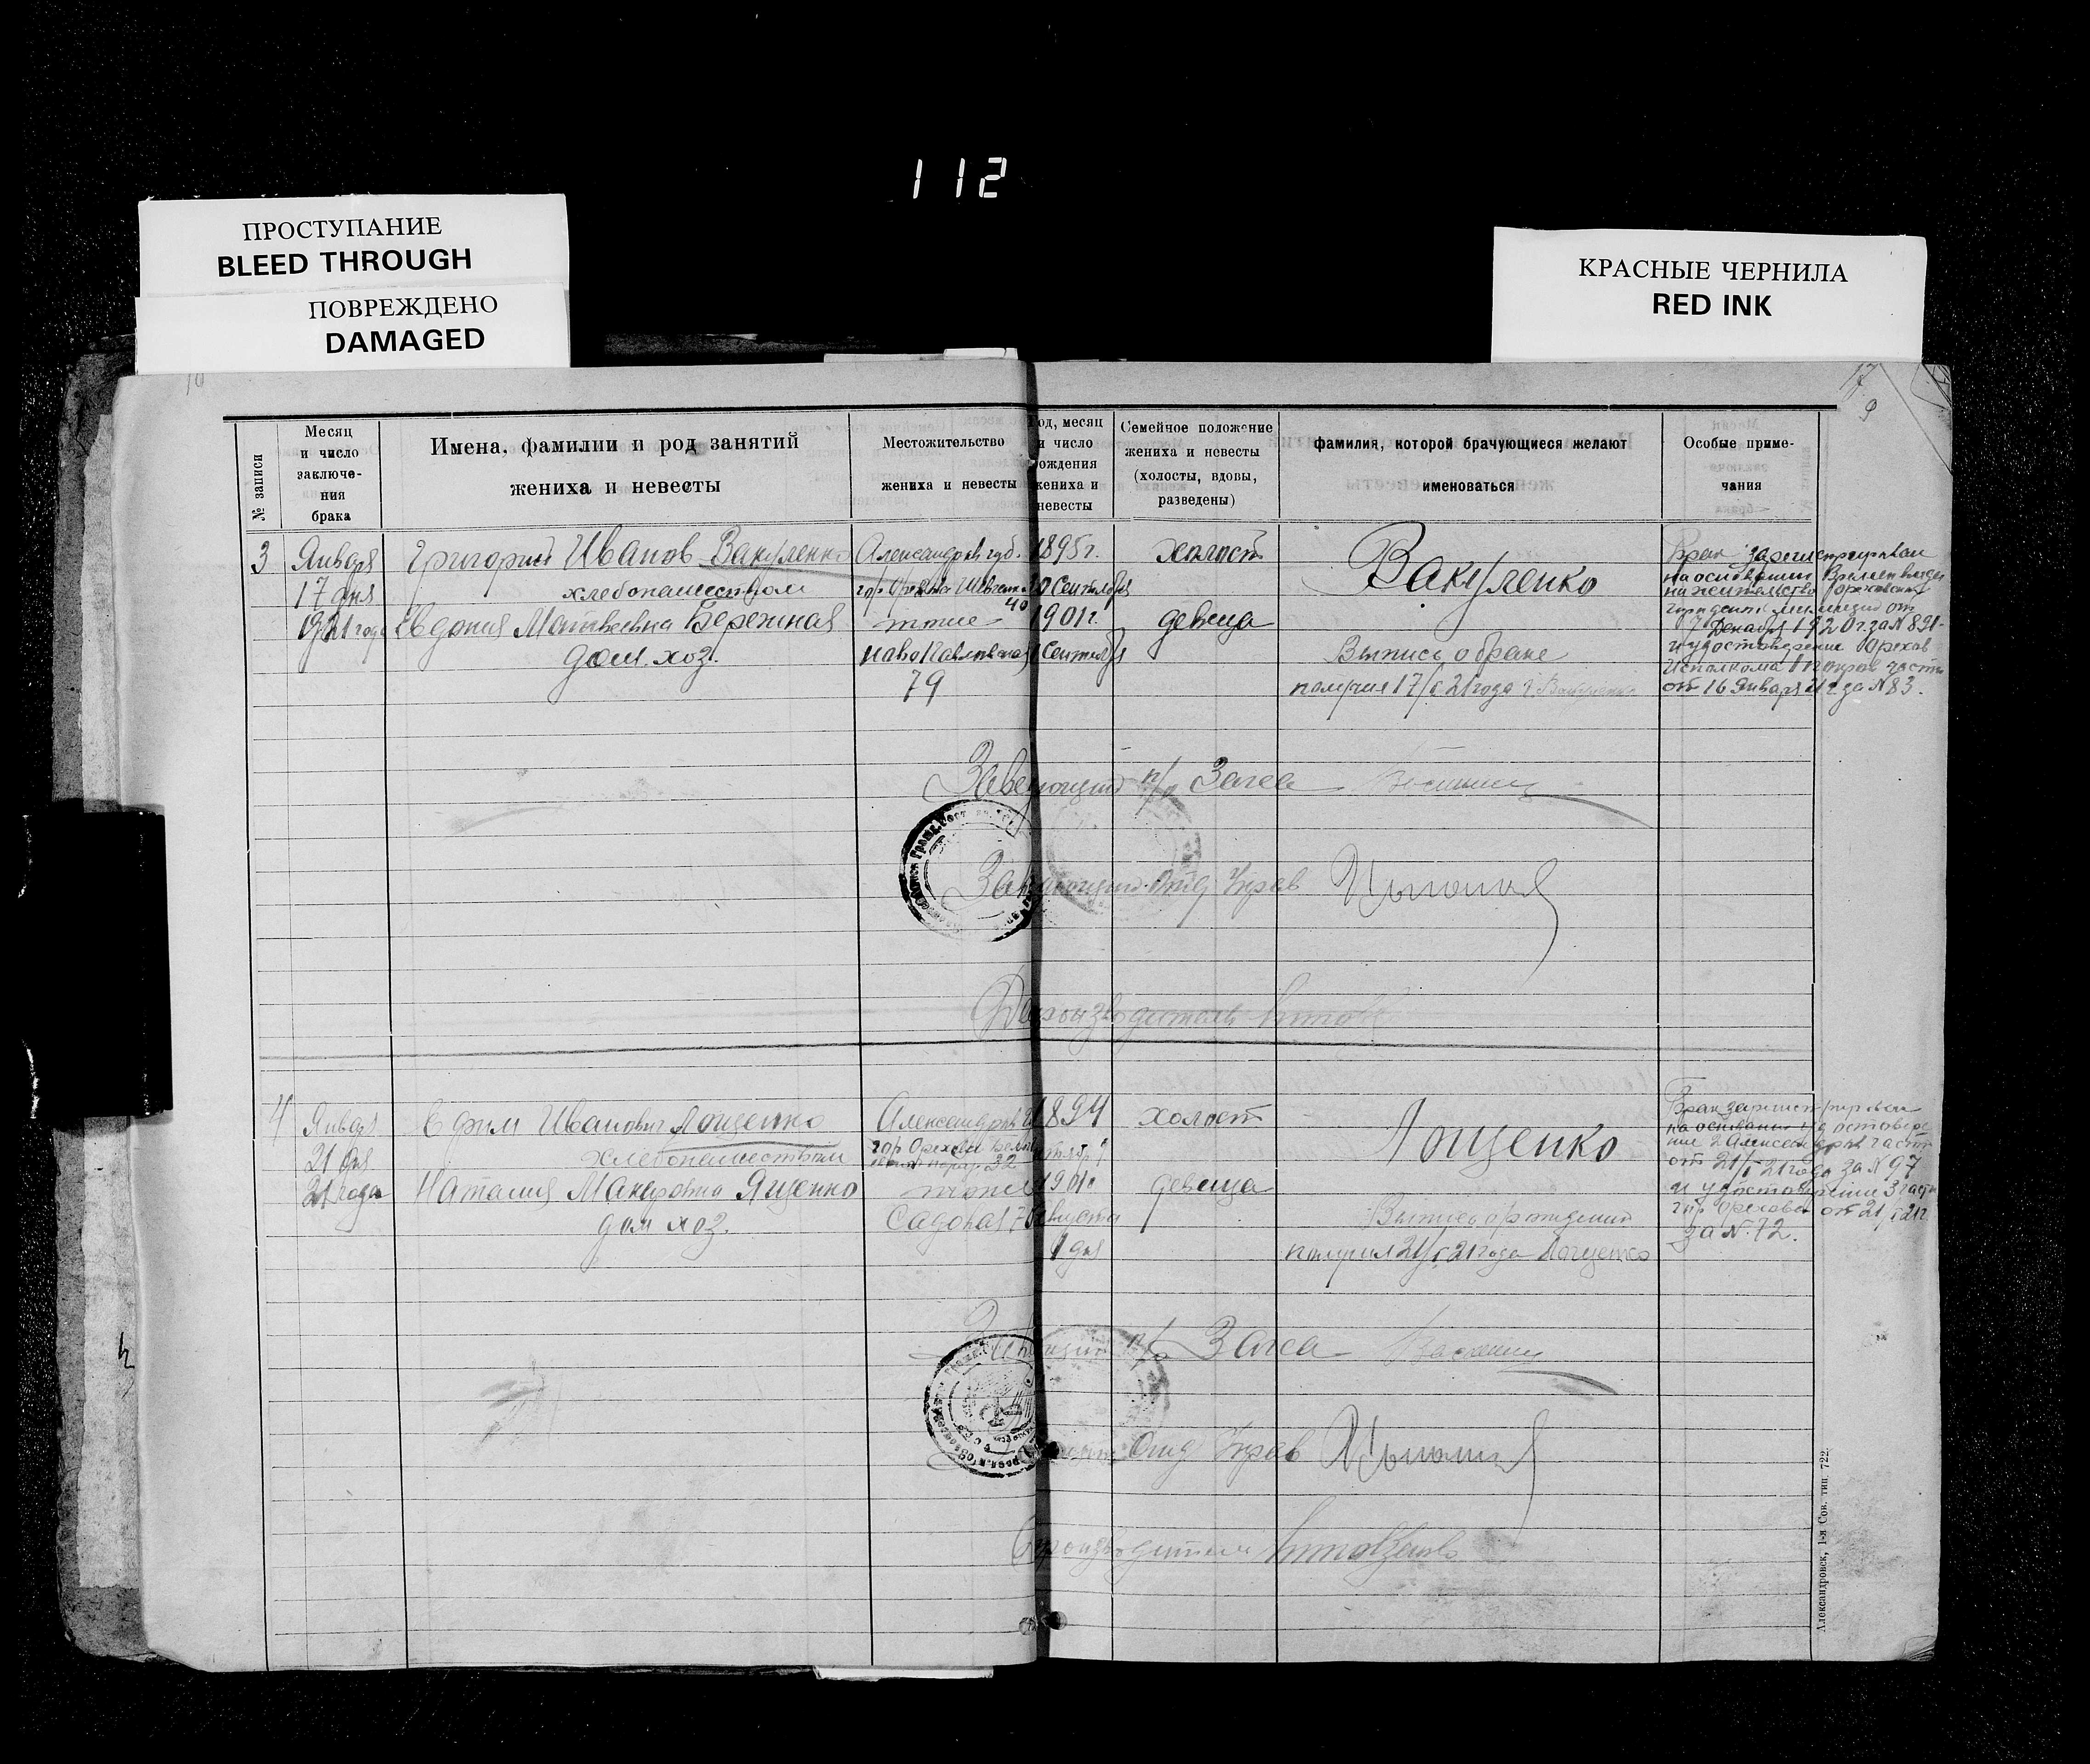 112
ПРОСТУПАНИЕ
BLEED THROUGH
ПОВРЕЖДЕНО
DAMAGED
КРАСНЫЕ ЧЕРНИЛА
RED INK
17
9
№ записи
Месяц
и число
заключе-
ния
брака
Имена, фамилии и род занятий
жениха и невесты
Местожительство
жениха и невесты
Год, месяц
и число
рождения
жениха и
невесты
Семейное положение
жениха и невесты
(холосты, вдовы,
разведены)
фамилия, которой брачующиеся желают
именоваться
Особые приме-
чания
3
Января
17 дня
1921 года
Григорий Иванов Вакуленко
хлебопашеством
Евдокия Матвеевна Бережная
дом. хоз.
Александров. губ.
гор. Орехов
40
тоже
Ново Павловская
79
1895 г.
20 Сентября
1901 г.
1 Сентября
холост
девица
Вакуленко
Выпись о браке
получил 17/I 21 года
Брак зарегистрирован
на основании
на жительство
милиции от
7 Декабря 1920 г. за № 891
и удостоверение Орехов.
Исполкома
от 16 Января 21 г. за № 83.
Заведующий п/о Загса
Заведующий Отд. Управ
Делопроизводитель
4
Января
21 дня
21 года
Ефим Иванович Лощенко
хлебопашеством
Наталия Макаровна Ященко
дом хоз.
Александров
гор Орехов
32
тоже
Садовая 7
1894
1901
Августа
1 дня
холост
девица
Лощенко
Выпись о рождении
получил 21/I 21 года Лощенко
Брак зарегистрирован
на основании удостовере
ние 2 Александров части
от 21/I 21 года за № 97
и удостоверение 3 части
гор Орехова от 21/I 21 г.
за № 72.
Заведующий п/о Загса
Отд Управ
Делопроизводитель
Александровск, 1-я Сов. тип. 722.